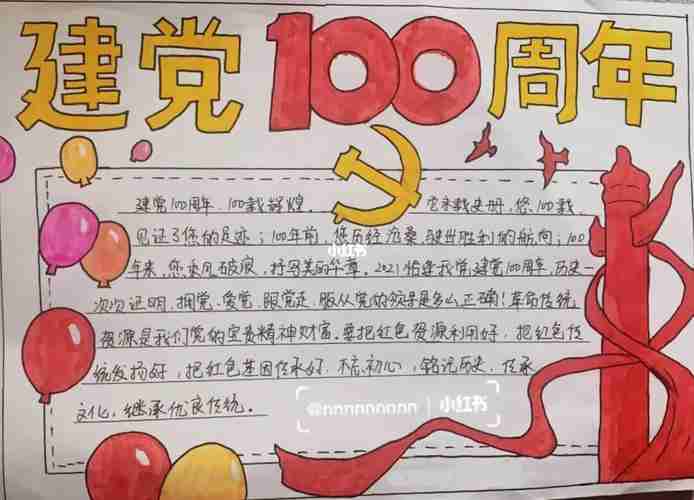 建党100周年
建党100周年，100载辉煌，它永载史册，您100载，
见证了您的足迹；100年前，您历经沧桑，驶出胜利的航向；100
年来，您乘风破浪，抒写美的华章。2021恰逢我党建党100周年，历史一
次次证明，拥党、爱党、跟党走、服从党的领导是多么正确！革命传统
资源是我们党的宝贵精神财富。要把红色资源利用好，把红色传
统发扬好，把红色基因传承好。不忘初心，铭记历史，传承
文化，继承优良传统。
小红书
@nnnnnnnnn 小红书